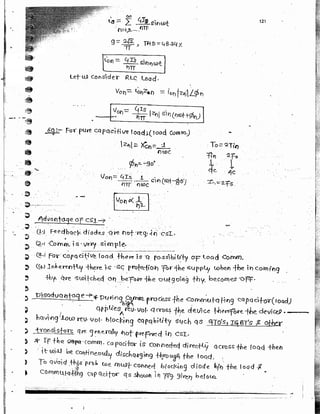 i₀ = Σ 4Is/nπ sin nωt
n=1,3,...
121
g = 2√2/π , THD = 48.34%
i₀n = 4Is/nπ sin nωt
Let us consider RLC Load.
V₀n = i₀n Z∠Øn = i₀n |Zn| ∠Øn
V₀n = 4Is/nπ |Zn| sin(nωt+Øn)
Eg:- For pure capacitive loads (load comm.)
|Zn| = Xcn = 1/nωc
Øn = -90°
V₀n = 4Is/nπ 1/nωc sin(nωt-90°)
V₀n ∝ 1/n²
Advantage of CSI →
(1) Feedback diodes are not req. in CSI.
(2) Comm. is very simple.
(3) For capacitive load there is a possibility of Load Comm.
(4) Inherently there is SC protection for the supply when the incoming
thy. are switched on before the outgoing thy. becomes OFF.
Disadvantage → * During Comm. process the commutating capacitor (load)
applies high rev. vol. across the device therefore the device
having low rev. vol. blocking capability such as GTO's, IGBT's & other
transistors are generally not preferred in CSI.
* If the comm. capacitor is connected directly across the load then
it will be continuously discharging through the load.
To avoid this prob. we must connect blocking diode b/n the load &
commutating capacitor as shown in fig given below.